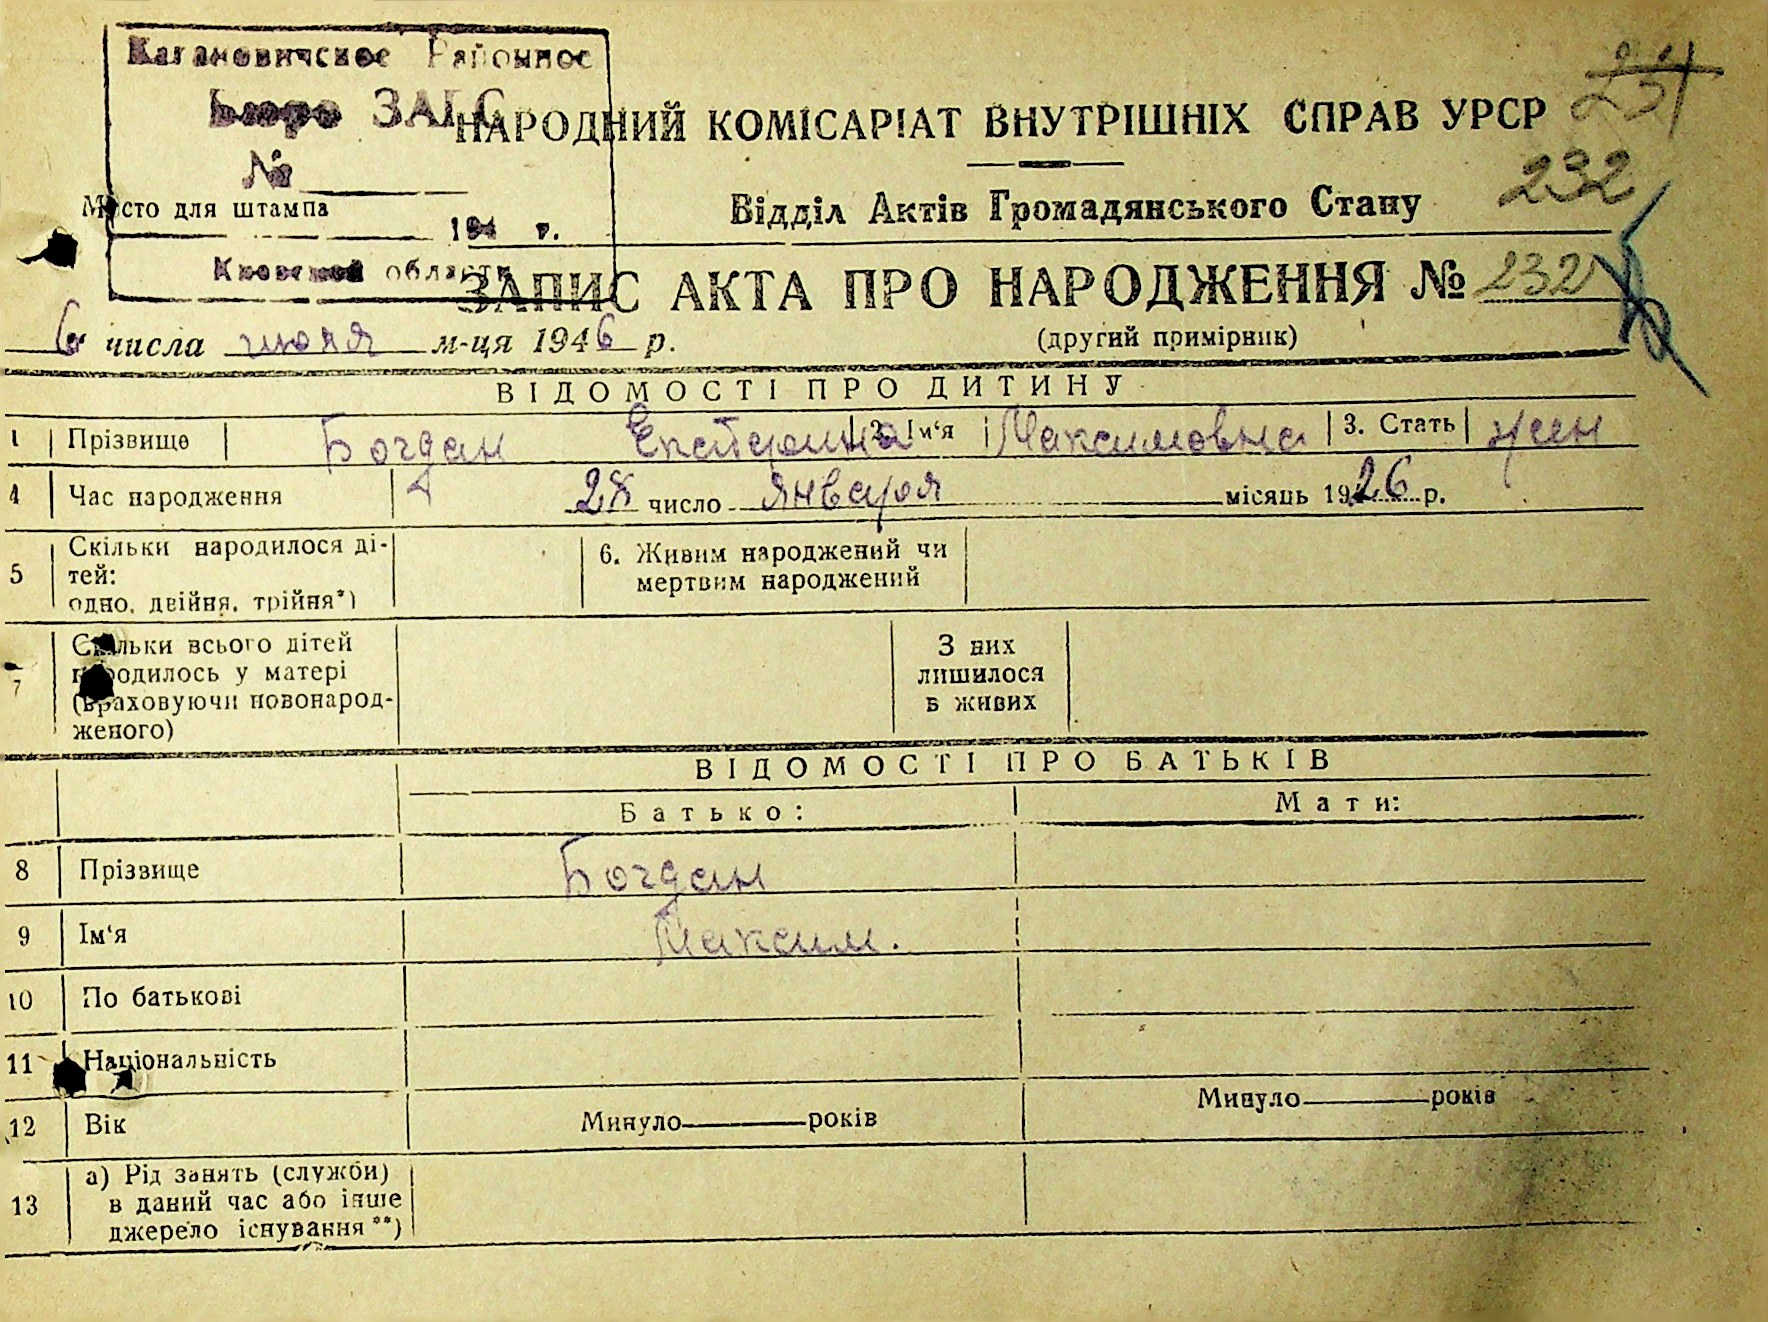 Кагановичское Районное
Бюро ЗАГС
№
Место для штампа
194 г.
Киевской области
231
НАРОДНИЙ КОМІСАРІАТ ВНУТРІШНІХ СПРАВ УРСР
232
Відділ Актів Громадянського Стану
ЗАПИС АКТА ПРО НАРОДЖЕННЯ № 232
6 числа июня м-ця 1946 р.
(другий примірник)
ВІДОМОСТІ ПРО ДИТИНУ
1 Прізвище Богдан Екатерина 2. Ім‘я Максимовна 3. Стать жен
4 Час народження 28 число января місяць 1926 р.
5 Скільки народилося ді-
тей:
одно, двійня, трійня*)
6. Живим народжений чи
мертвим народжений
7 Скільки всього дітей
народилось у матері
(враховуючи новонарод-
женого)
З них
лишилося
в живих
ВІДОМОСТІ ПРО БАТЬКІВ
Батько: Мати:
8 Прізвище Богдан
9 Ім‘я Максим.
10 По батькові
11 Національність
12 Вік Минуло років Минуло років
13 а) Рід занять (служби)
в даний час або інше
джерело існування**)